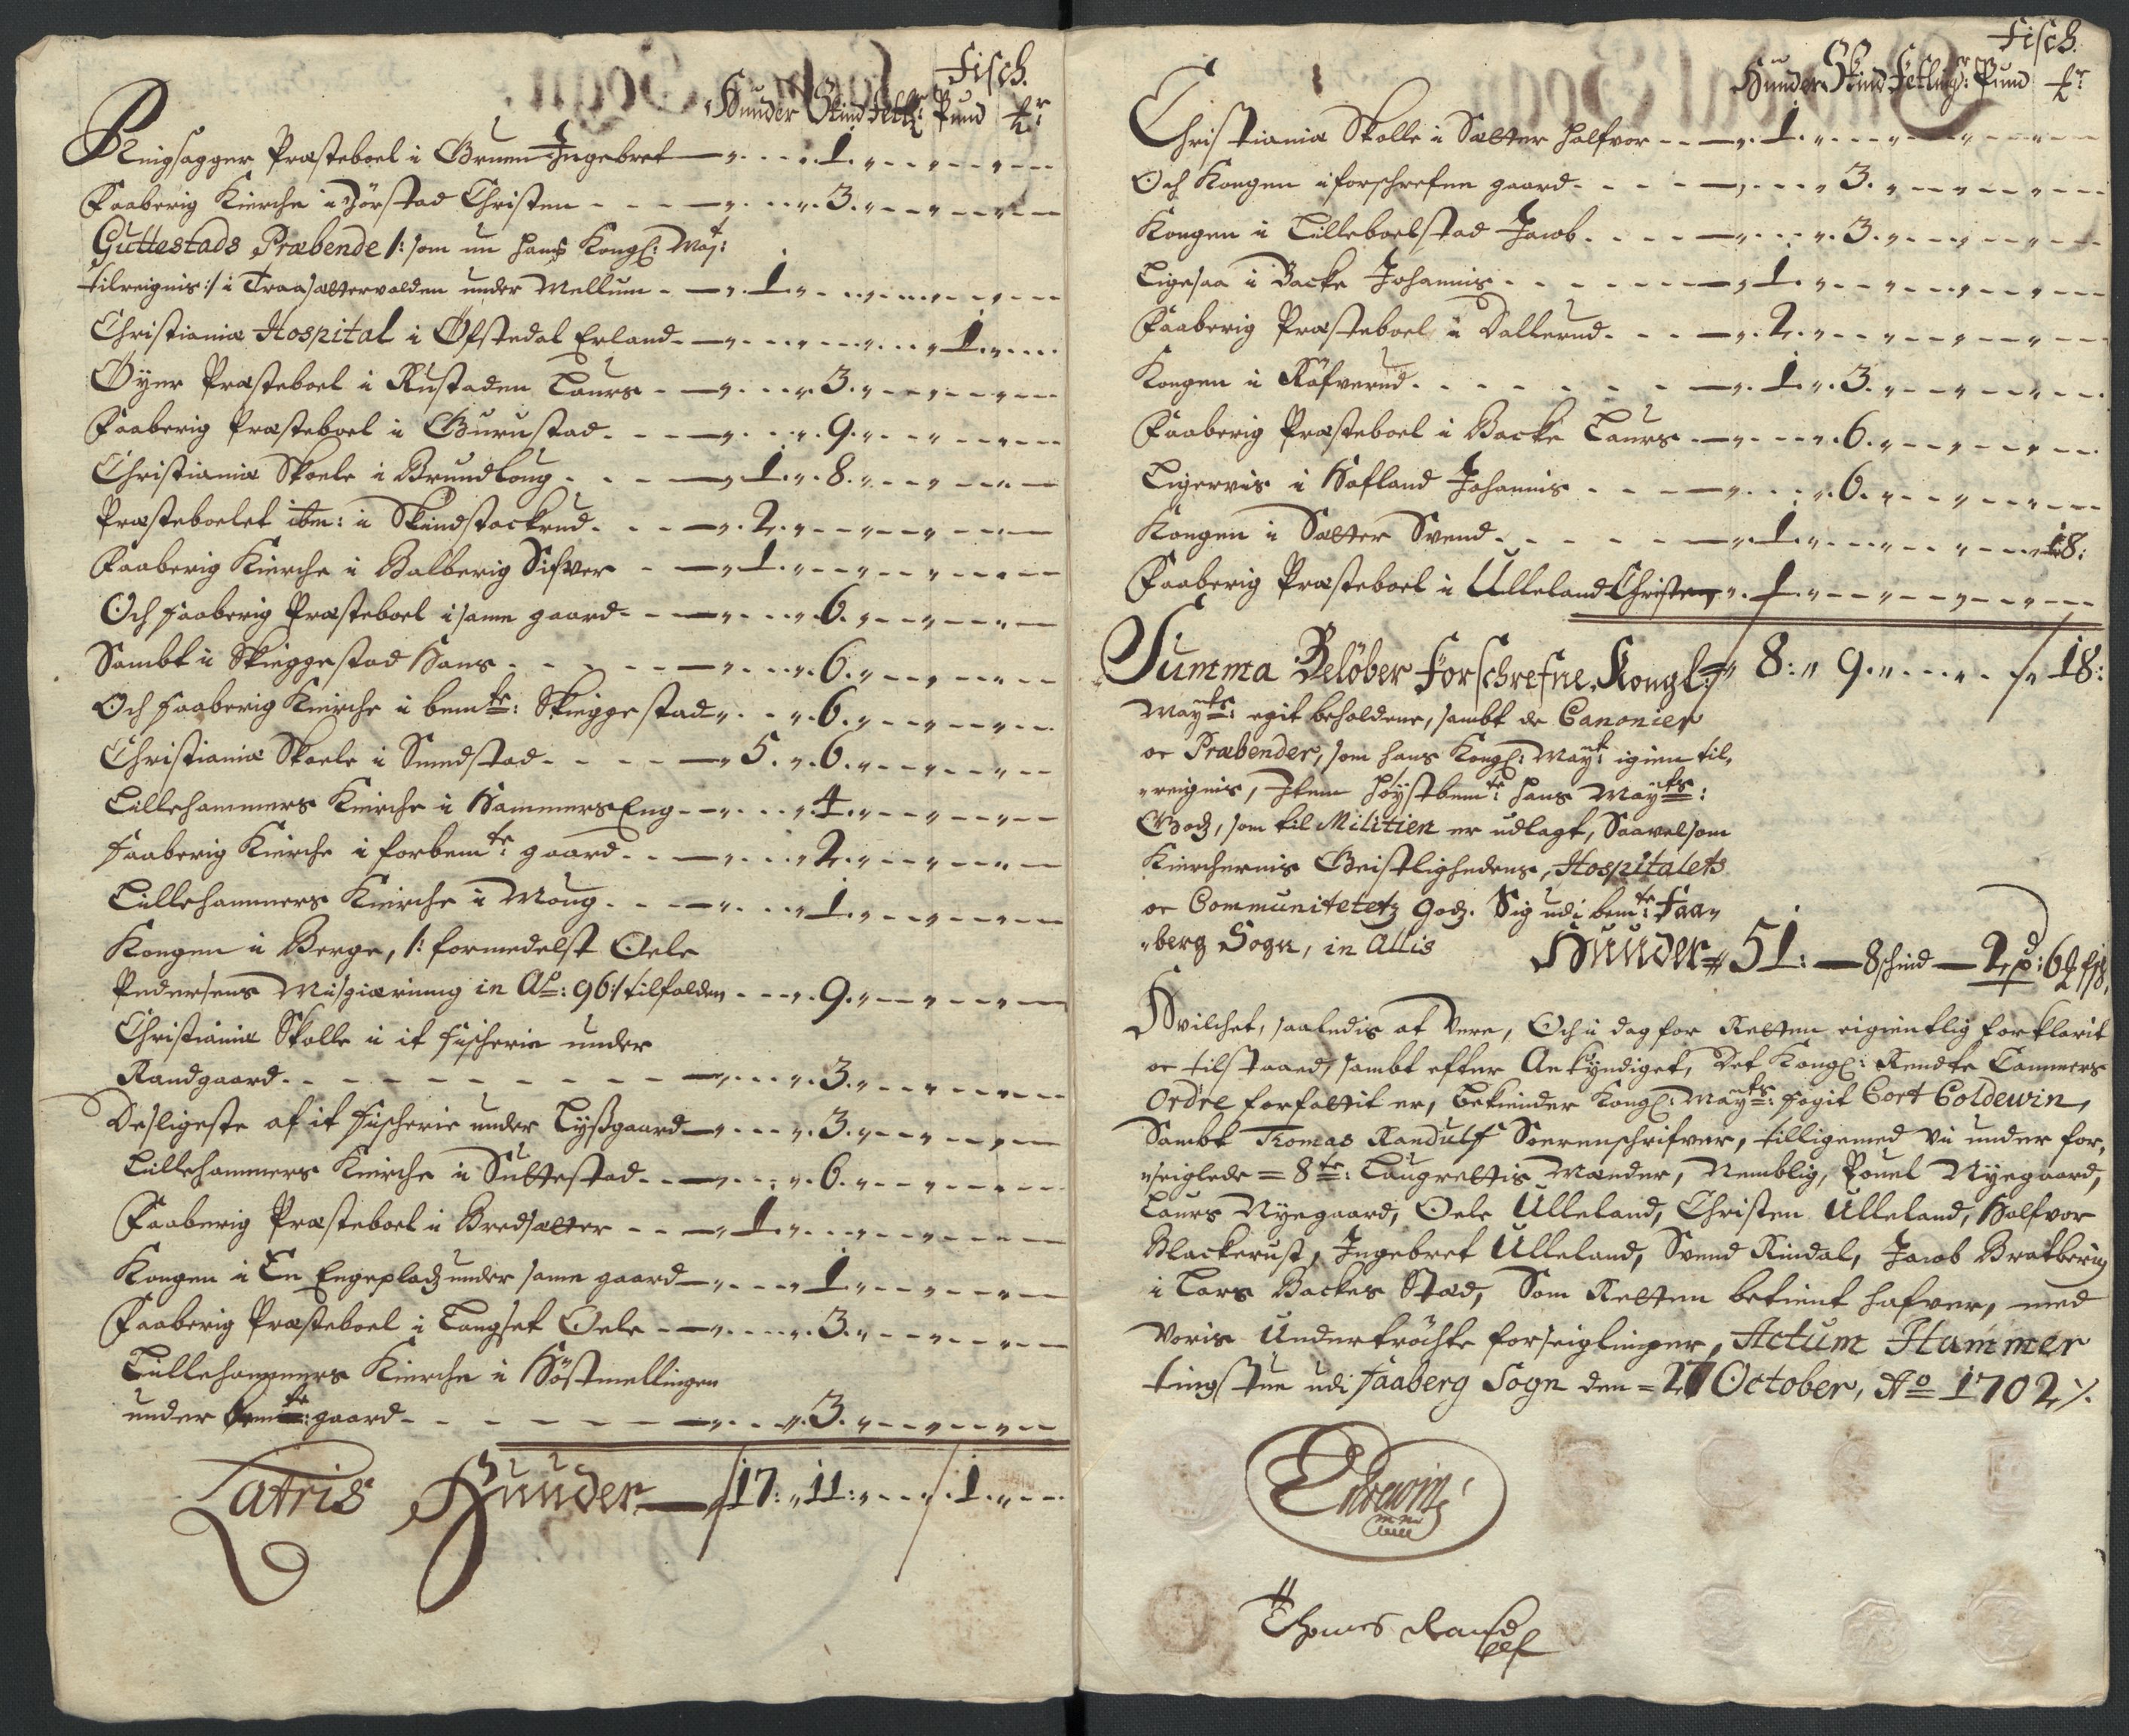 Fisch.
Huuder Skind Fetl: Pund ℔r
Ringsagger Præsteboel i Gruen Ingebret — „ . . . . 1. „ - - „ - - „ - -
Faaberig Kierche i Jörstad Christen - - - — „ . . . „ 3. „ - - „ - - „ - -
Guttestads Præbende /: som nu hans Kongl: Maj:t
tilreignis :/ i Traasættervolden under Mellum - — „. 1. „ - - „ - - „ - -
Christiania Hospital i Öfstedal Erland - — „ . . . „ - - „ . . . 1. „ - -
Öyer Præsteboel i Rustaden Laurs - — „ . . . „ 3. „ - - „ - - „ - -
Faaberig Præsteboel i Gurustad - - - — „ . . . „ 9. „ - - „ - - „ - -
Christiania Skoele i Brundloug - - - — „ 1. „ 8. „ - - „ - - „ - -
Præsteboelet ibm: i Skindstackrud - - - — „. 2. „ - - „ - - „ - -
Faaberig Kierche i Balberig Sifver - — „ 1. „ - - „ - - „ - -
Och Faaberig Præsteboel i same gaard - - — „ . . . „ 6. „ - - „ - - „ - -
Sambt i Skieggestad Hans - - - — „ . . . „ 6. „ - - „ - - „ - -
Och Faaberig Kierche i bemte: Skieggestad „ . . „ 6. „ - - „ - - „ - -
Christiania Skoele i Smedstad - - - — „ 5. „ 6. „ - - „ - - „ - -
Lillehammers Kierche i HammersEng - — „ . . . „ 4. „ - - „ - - „ - -
Faaberig Kierche i forbemte: gaard - - — „ . . . „ 2. „ - - „ - - „ - -
Lillehammers Kierche i Moug - - - — „ . . . „ 1. „ - - „ - - „ - -
Kongen i Berge, /: formedelst Oele
Pedersens Misgierning in Ao: 96 :/ tilfalden - - - „ . 9. „ - - „ - - „ - -
Christiania Skolle i it Fischerie under
Randgaard - - - - - - - - — „ . . . „ 3. „ - - „ - - „ - -
Desligeste af it Fischerie under Lyssgaard — „ . . . „ 3. „ - - „ - - „ - -
Lillehammers Kierche i Suttestad - - — „ . . . „ 6. „ - - „ - - „ - -
Faaberig Præsteboel i Bredsætter - - — „ 1. „ - - „ - - „ - -
Kongen i En Engepladz under same gaard — „ . . . „ 1. „ - - „ - - „ - -
Faaberig Præsteboel i Langset Oele - — „ . . . „ 3. „ - - „ - - „ - -
Lillehammers Kierche i Höstmellingen
under bemte: gaard - - - - - - — „ . . . „ 3. „ - - „ - - „ - -
Latris Huuder — 17: „ 11: „ - - „ . 1. „ - -
Fisch.
Huuder Skind Fetling: Pund ℔r
Christiania Skolle i Sætter Halfvor - - — „. 1. „ - - „ - - „ - -
Och Kongen i forschrefne gaard - - - — „ . . . „ 3. „ - - „ - - „ - -
Kongen i Lilleboelstad Jacob - - - — „ . . . „ 3. „ - - „ - - „ - -
Ligesaa i Backe Johannis - - - - — „ 1. „ - - „ - - „ - -
Faaberig Præsteboel i Dallerud - - - — „. 2. „ - - „ - - „ - -
Kongen i Röfverud - - - - - - — „. 1. „ 3. „ - - „ - - „ - -
Faaberig Præsteboel i Backe Laurs - — „ . . . „ 6. „ - - „ - - „ - -
Ligervis i Hofland Johannis - - - — „ . . . „ 6. „ - - „ - - „ - -
Kongen i Sætter Svend - - - - - — „. 1. „ - - „ - - „ - - „ 18:
Faaberig Præsteboel i Ulleland Christen „. 1. „ - - „ - - „ - -
Summa Belöber Forschrefne Kongl: „ 8: „ 9. „ . . . . „ 18:
Mayts: egit beholdene, sambt de Canonier
oc Præbender, som hans Kongl: Mayt: igien til„
„reignis, Item höystbemte: hans Mayts:
Godz, som til Militien er udlagt, Saavelsom
Kierchernis Geistlighedens, Hospitalets
oc Communitetetz godz. Sig udi bemte: Faa„
„berg Sogn, in Allis Huuder = 51: — 8 schind — 2 pd: 6 ℔ fisk.
Hvilchet, saaledis at Vere, Och i dag for Retten eigientlig forklarit
oc tilstaaed, sambt efter Ankyndiget, Det Kongl: Rendte Cammers
Ordre forfattit er, bekiender Kongl: Mayts: fogit Cort Coldewin,
Sambt Thomas Randulf Soerenschrifver, tilligemed Vii under for„
„seiglede = 8te: Laugrettis Mænder, Nemblig, Pouel Nyegaard,
Laurs Nyegaard, Oele Ulleland, Christen Ulleland, Halfvor
Blackerust, Ingebret Ulleland, Svend Rindal, Jacob Bratberig
i Lars Backes Stæd, Som Retten betient hafver, med
Voris Undertröchte forseiglinger, Actum Hammer
tingstue udi Faaberg Sogn den = 27 October, Ao 1702 ⁒.
Coldewin
Thomes Randulf